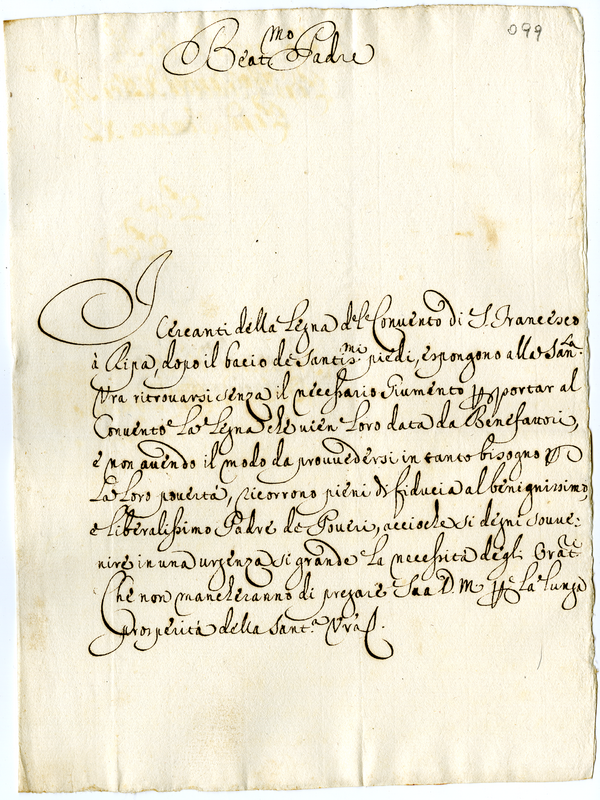 099
Beat.mo Padre
I Cercanti della Legna del Convento di S. Francesco
à Ripa, dopo il bacio de Santis.mi piedi, espongono alla San.tà
Vra ritrovarsi senza il necessario Giumento p portar al
Convento la Legna che vien Loro data da Benefattori,
e non avendo il modo da provvedersi in tanto bisogno p
La Loro povertà, ricorrono pieni di fiducia al benignissimo,
e liberalissimo Padre de Poveri, accioche si degni souve-
nire in una urgenza si grande la necessità degli Orat.i
Che non mancheranno di pregare Sua D. M. p La Lunga
prosperità della Sant.à Vra